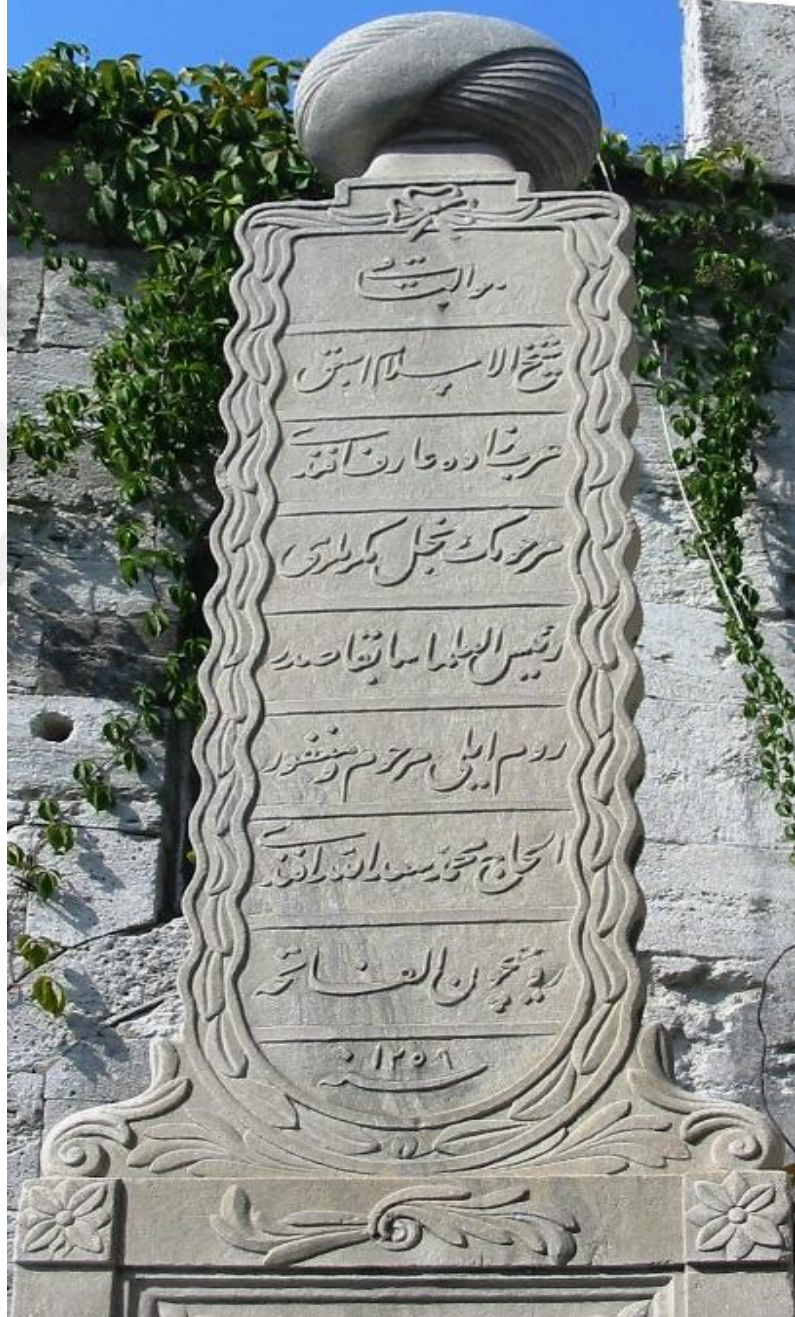 هو الباقى
شيخ الاسلام اسبق
عرب زاده عارف افندى
مرحومك نجل مكرملرى
رئيس العلما سابقا صدر
روم ايلى مرحوم و مغفور
الحاج محمد سعد الله افندى
روحيچون الفاتحه
سنه ١٢٥٩